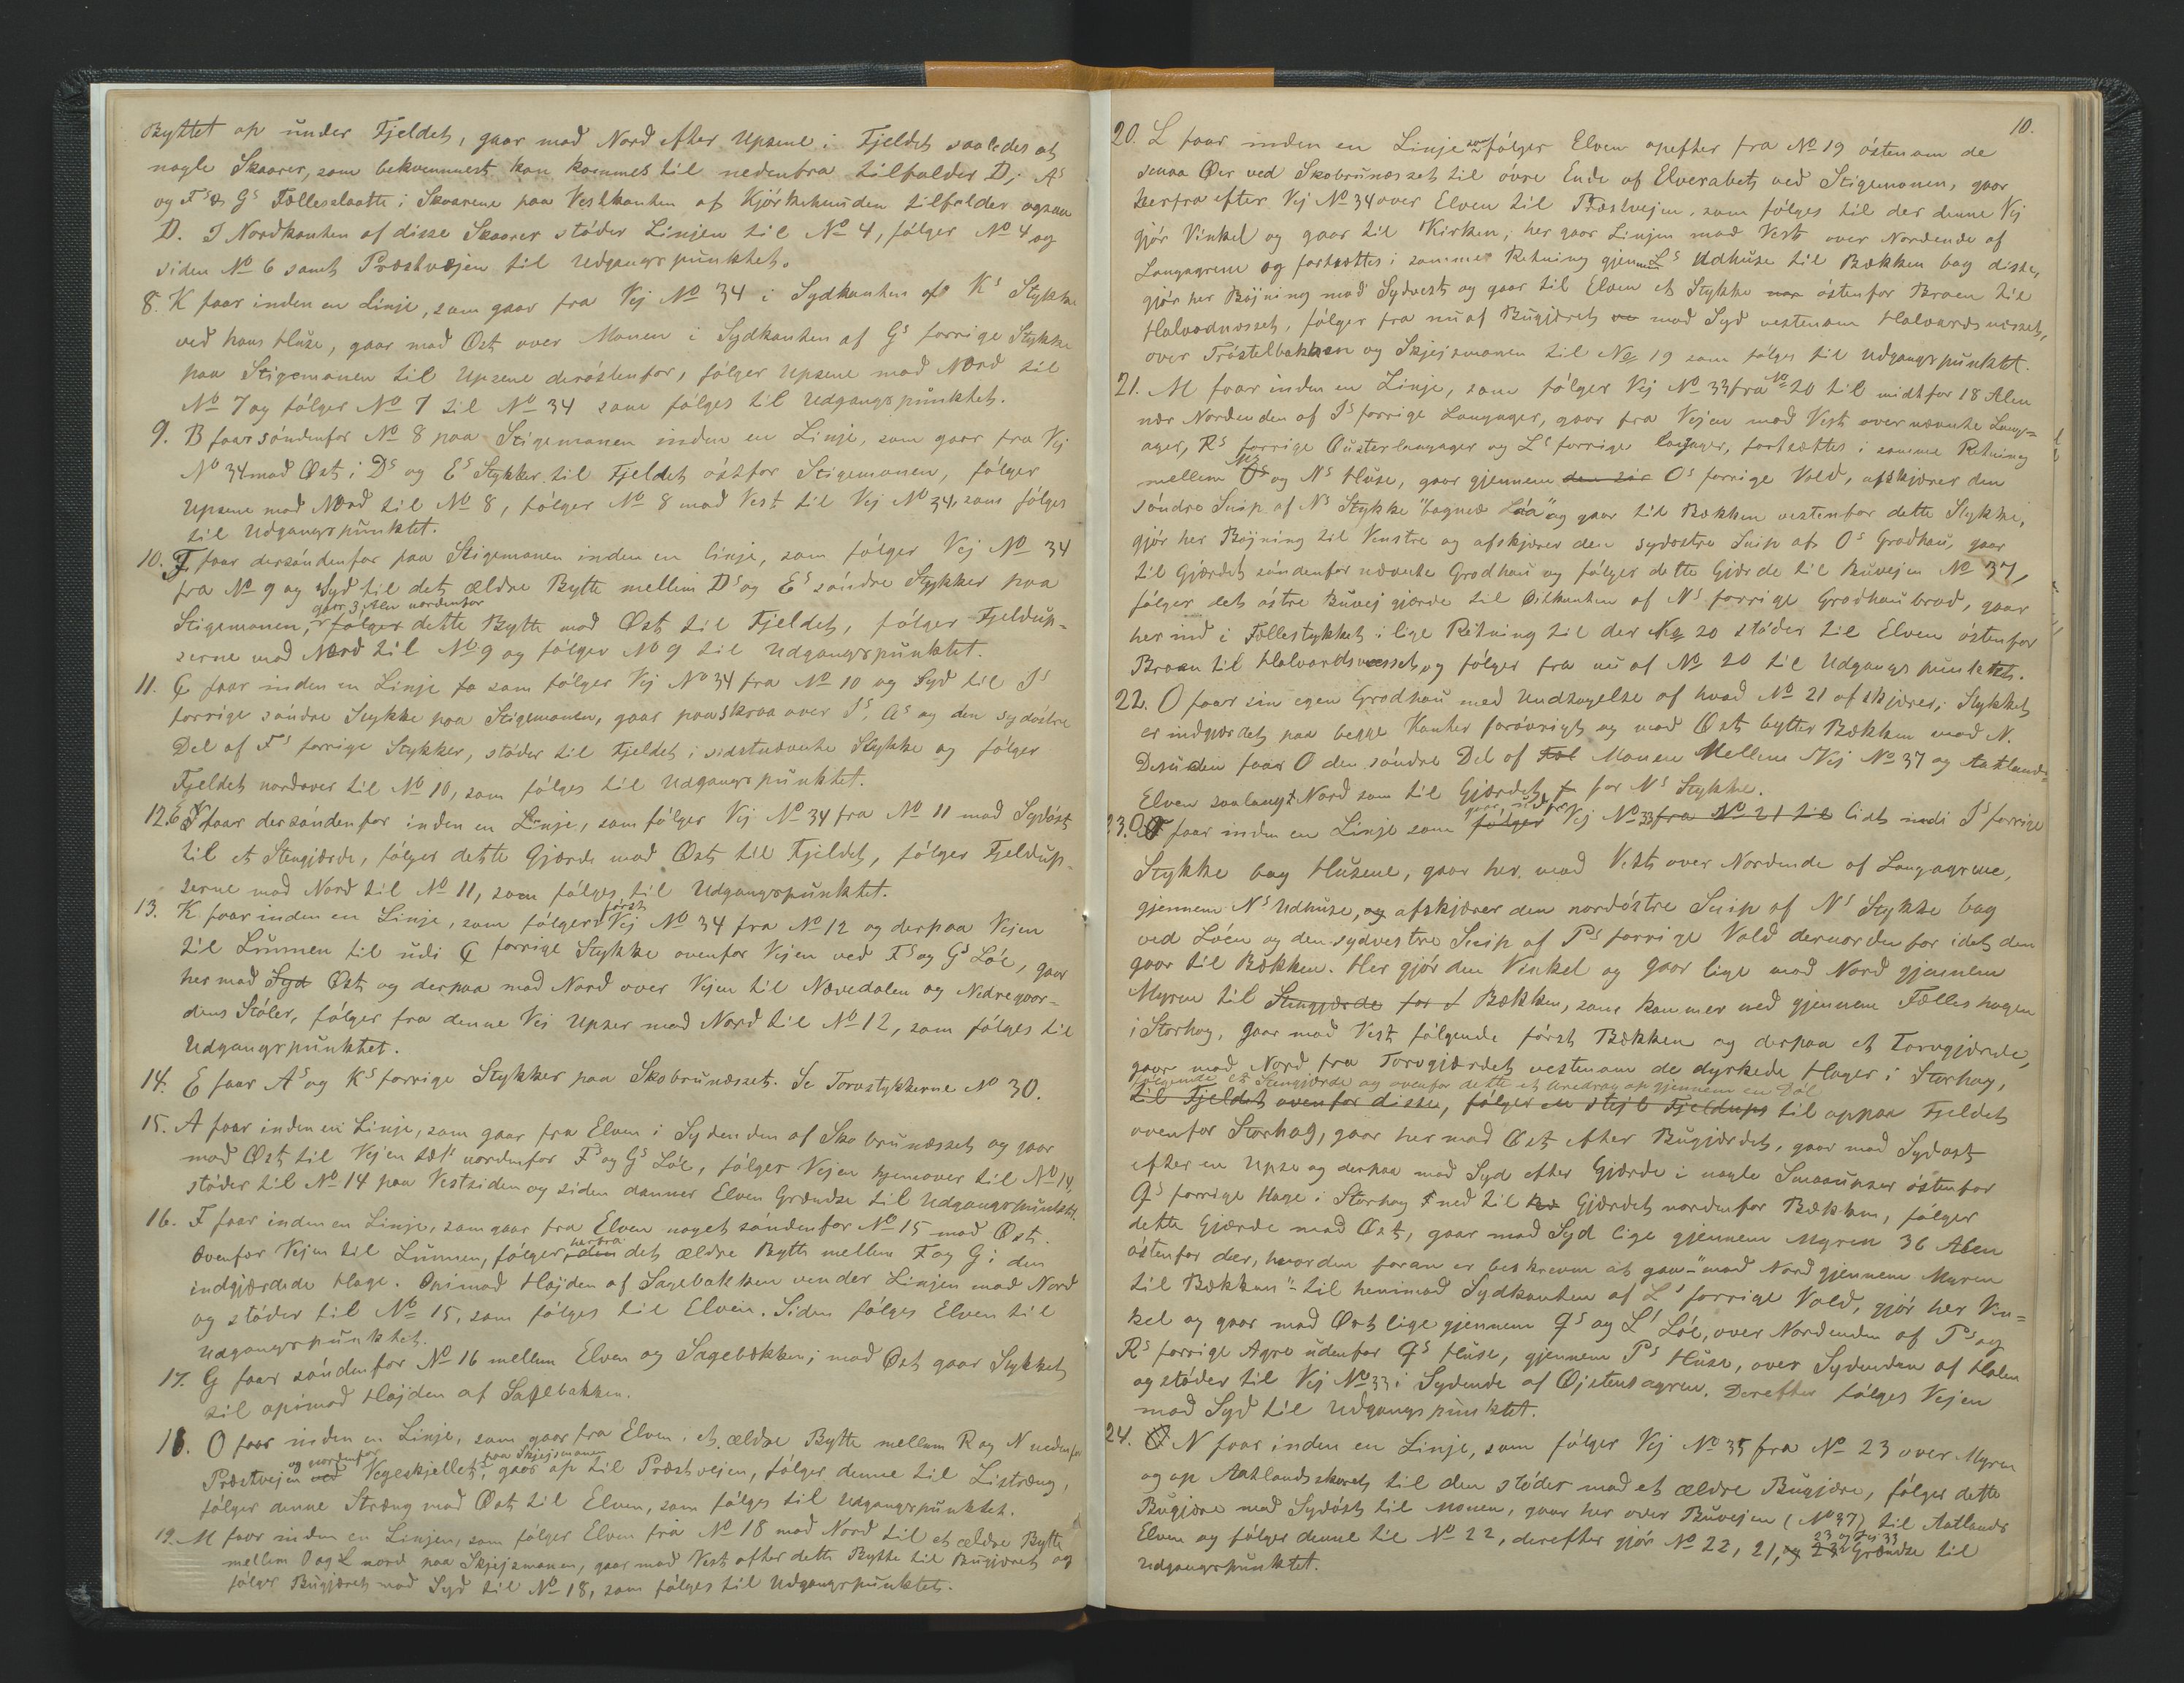 Byttet op under Fjeldet, gaar mod Nord efter Upsene i Fjeldet saaledes at
nogle Skaarer, som bekvemmest kan kommes til nedenfra tilfalder D; As
og Fs & Gs Fællesslaatte i Skaarene paa Vestkanten af Kjörkehuuden tilfalder ogsaa
D. I Nordkanten af disse Skaarer stöder Linjen til No 4, fölger No 4 og
siden No 6 samt Præstvejen til Udgangspunktet.
8. K faar inden en Linje, som gaar fra Vej No 34 i Sydkanten af Ks Stykke
ved hans Huse, gaar mod Öst over Monen i Sydkanten af Gs forrige Stykke
paa Stigemonen til Upsene deröstenfor, fölger Upsene mod Nord til
No 7 og fölger No 7 til No 34 som fölges til Udgangspunktet.
9. B faar söndenfor No 8 paa Stigemonen inden en Linje, som gaar fra Vej
No 34 mod Öst i Ds og Es Stykker til Fjeldet östfor Stigemonen, fölger
Upsene mod Nord til No 8, fölger No 8 mod Vest til Vej No 34, som fölges
til Udgangspunktet.
10. F faar dersöndenfor paa Stigemonen inden en linje, som fölger Vej No 34
fra No 9 og Syd til det ældre Bytte mellem Ds og Es söndre Stykker paa
gaar 3 Alen nordenfor
Stigemonen, fölger dette Bytte mod Öst til Fjeldet, fölger Fjeldup-
serne mod Nord til No 9 og fölger No 9 til Udgangspunktet.
11. C faar inden en Linje fo som fölger Vej No 34 fra No 10 og Syd til Is
forrige söndre Stykke paa Stigemonen, gaar paa skraa over Is, As og den sydöstre
Del af Fs forrige Stykker, stöder til Fjeldet i sidstnævnte Stykke og fölger
Fjeldet nordover til No 10, som fölges til Udgangspunktet.
12. faar dersöndenfor inden en Linje, som fölger Vej No 34 fra No 11 mod Sydöst
til et Stengjærde, fölger dette Gjærde mod Öst til Fjeldet, fölger Fjeldup-
serne mod Nord til No 11, som fölges til Udgangspunktet.
13. K faar inden en Linje, som fölger först Vej No 34 fra No 12 og derpaa Vejen
til Lunnen til udi C forrige Stykke ovenfor Vejen ved Fs og Gs Löe, gaar
her mod Syd Öst og derpaa mod Nord over Vejen til Nævedalen og Nedregaar-
dens Stöler, fölger fra denne Vej Upser mod Nord til No 12, som fölges til
Udgangspunktet.
14. E faar As og Ks forrige Stykker paa Skobrunæsset. Se Torvstykkerne No 30.
15. A faar inden en Linje, som gaar fra Elven i Sydenden af Skobrunæsset og gaar
mod Öst til Vejen tæt nordenfor Fs og Gs Löe, fölger Vejen hjemover til No 14,
stöder til No 14 paa Vestsiden og siden danner Elven Grændse til Udgangspunktet.
16. F faar inden en Linje, som gaar fra Elven noget söndenfor No 15 mod Öst.
Ovenfor Vejen til Lunnen, fölger herfra den det ældre Bytte mellem F og G i den
indgjærdede Hage. Opimod Höjden af Sagebakken vender Linjen mod Nord
og stöder til No 15, som fölges til Elven. Siden fölges Elven til
Udgangspunktet.
17. G faar söndenfor No 16 mellem Elven og Sagebækken; mod Öst gaar Stykket
til opimod Höjden af Sagebakken.
18. O faar inden en Linje, som gaar fra Elven i et ældre Bytte mellem R og N nedenfor
og nordenfor paa Skjejsmonen
Præstvejen ved Vegeskjellet, gaar op til Præstvejen, fölger denne til Listræng,
fölger denne Stræng mod Öst til Elven, som fölges til Udgangspunktet.
19. M faar inden en Linjen, som fölger Elven fra No 18 mod Nord til et ældre Bytte
mellem O og L nord paa Skjejsmonen, gaar mod Vest efter dette Bytte til Bugjæret og
fölger Bugjæret mod Syd til No 18, som fölges til Udgangspunktet.
10.
20. L faar inden en Linje som fölger Elven opefter fra No 19 östenom de
smaa Öer ved Skobrunæsset til övre Ende af Elverabet ved Stigemonen, gaar
herfra efter Vej No 34 over Elven til Præstvejen, som fölges til der denne Vej
gjör Vinkel og gaar til Kirken; her gaar Linjen mod Vest over Nordende af
Langagrene og fortsættes i samme Retning gjennem Ls Udhuse til Bækken bag disse,
gjör her Böjning mod Sydvest og gaar til Elven et Stykke östenfor Broen til
Halvodnæsset, fölger fra nu af Bugjæret mod Syd vestenom Halvardsnæsset,
over Tröstelbakken og Skjejsmonen til No 19 som fölges til Udgangspunktet.
21. M faar inden en Linje, som fölger Vej No 33 fra No 20 til midtfor 18 Alen
nær Nordenden af Is forrige Langager, gaar fra Vejen mod Vest over nævnte Lang-
ager, Rs forrige Austerlangager og Ls forrige langager, fortsættes i samme Retning
mellem Os og Ns Huse, gaar gjennem Os forrige Vold, afskjærer den
söndre Snip af Ns Stykke "bagved Löa" og gaar til Bækken vestenfor dette Stykke,
gjör her Böjning til Venstre og afskjærer den sydöstre Snip af Os Grodhau, gaar
til Gjærdet söndenfor nævnte Grodhau og fölger dette Gjærde til Buvejen No 37,
fölger det östre Buvejgjærde til Östkanten af Ns forrige Grodhaubrod, gaar
her ind i Fællestykket i lige Retning til der No 20 stöder til Elven östenfor
Broen til Halvardsnæsset, og fölger fra nu af No 20 til Udgangspunktet.
22. O faar sin egen Grodhau med Undtagelse af hvad No 21 afskjærer; Stykket
er indgjærdet paa begge Kanter forövrigt og mod Öst bytter Bækken mod N.
Desuden faar O den söndre Del af Monen Mellem Vej No 37 og Aatlands-
Elven saalangt Nord som til Gjærdet for Ns Stykke.
23. faar inden en Linje som fölger Vej No 33 fra No 21 til lidt indi Is forrige
Stykke bag Husene, gaar her mod Vest over Nordende af Langagrene,
gjennem Ns Udhuse, og afskjærer den nordöstre Snip af Ns Stykke bag
ved Löen og den sydvestre Snip af Ps forrige Vold dernordenfor idet den
gaar til Bækken. Her gjör den Vinkel og gaar lige mod Nord gjennem
Myren til Stengjærde for Bækken, som kommer ned gjennem Fælleshagen
i Storhag, gaar mod Vest fölgende först Bækken og derpaa et Torvgjærde,
gaar mod Nord fra Torvgjærdet vestenom de dyrkede Hager i Storhag,
fölgende et Stengjærde og ovenfor dette et Uredrag op gjennem en Döl
til Fjeldet ovenfor disse, fölger en stejl Fjeldups til oppaa Fjeldet
ovenfor Storhag, gaar her mod Öst efter Bugjærdet, gaar mod Sydost
efter en Upse og derpaa mod Syd efter Gjærde i nogle Smaaupser östenfor
Qs forrige Hage i Storhag ned til Gjærdet nordenfor Bækken, fölger
dette Gjærde mod Öst, gaar mod Syd lige gjennem Myren 36 Alen
östenfor der, hvorden foran er beskreven at gaa "mod Nord gjennem Myren
til Bækken" til henimod Sydkanten af Ls forrige Vold, gjör her Vin-
kel og gaar mod Öst lige gjennem Qs og Ls Löe, over Nordenden af Ps og
Rs forrige Agre udenfor Qs Huse, gjennem Ps Huse, over Sydenden af Holen
og stöder til Vej No 33 i Sydende af Öjstensagren. Derefter fölges Vejen
mod Syd til Udgangspunktet.
24. N faar inden en Linje, som fölger Vej No 35 fra No 23 over Myren
og op Aatlandsskoret til den stöder mod et ældre Bugjære, fölger dette
Bugjære mod Sydöst til Monen, gaar her over Buvejen (No 37) til Aatlands
Elven og fölger denne til No 22, derefter gjör No 22, 21, 23 og Vej 33 Grændse til
Udgangspunktet.